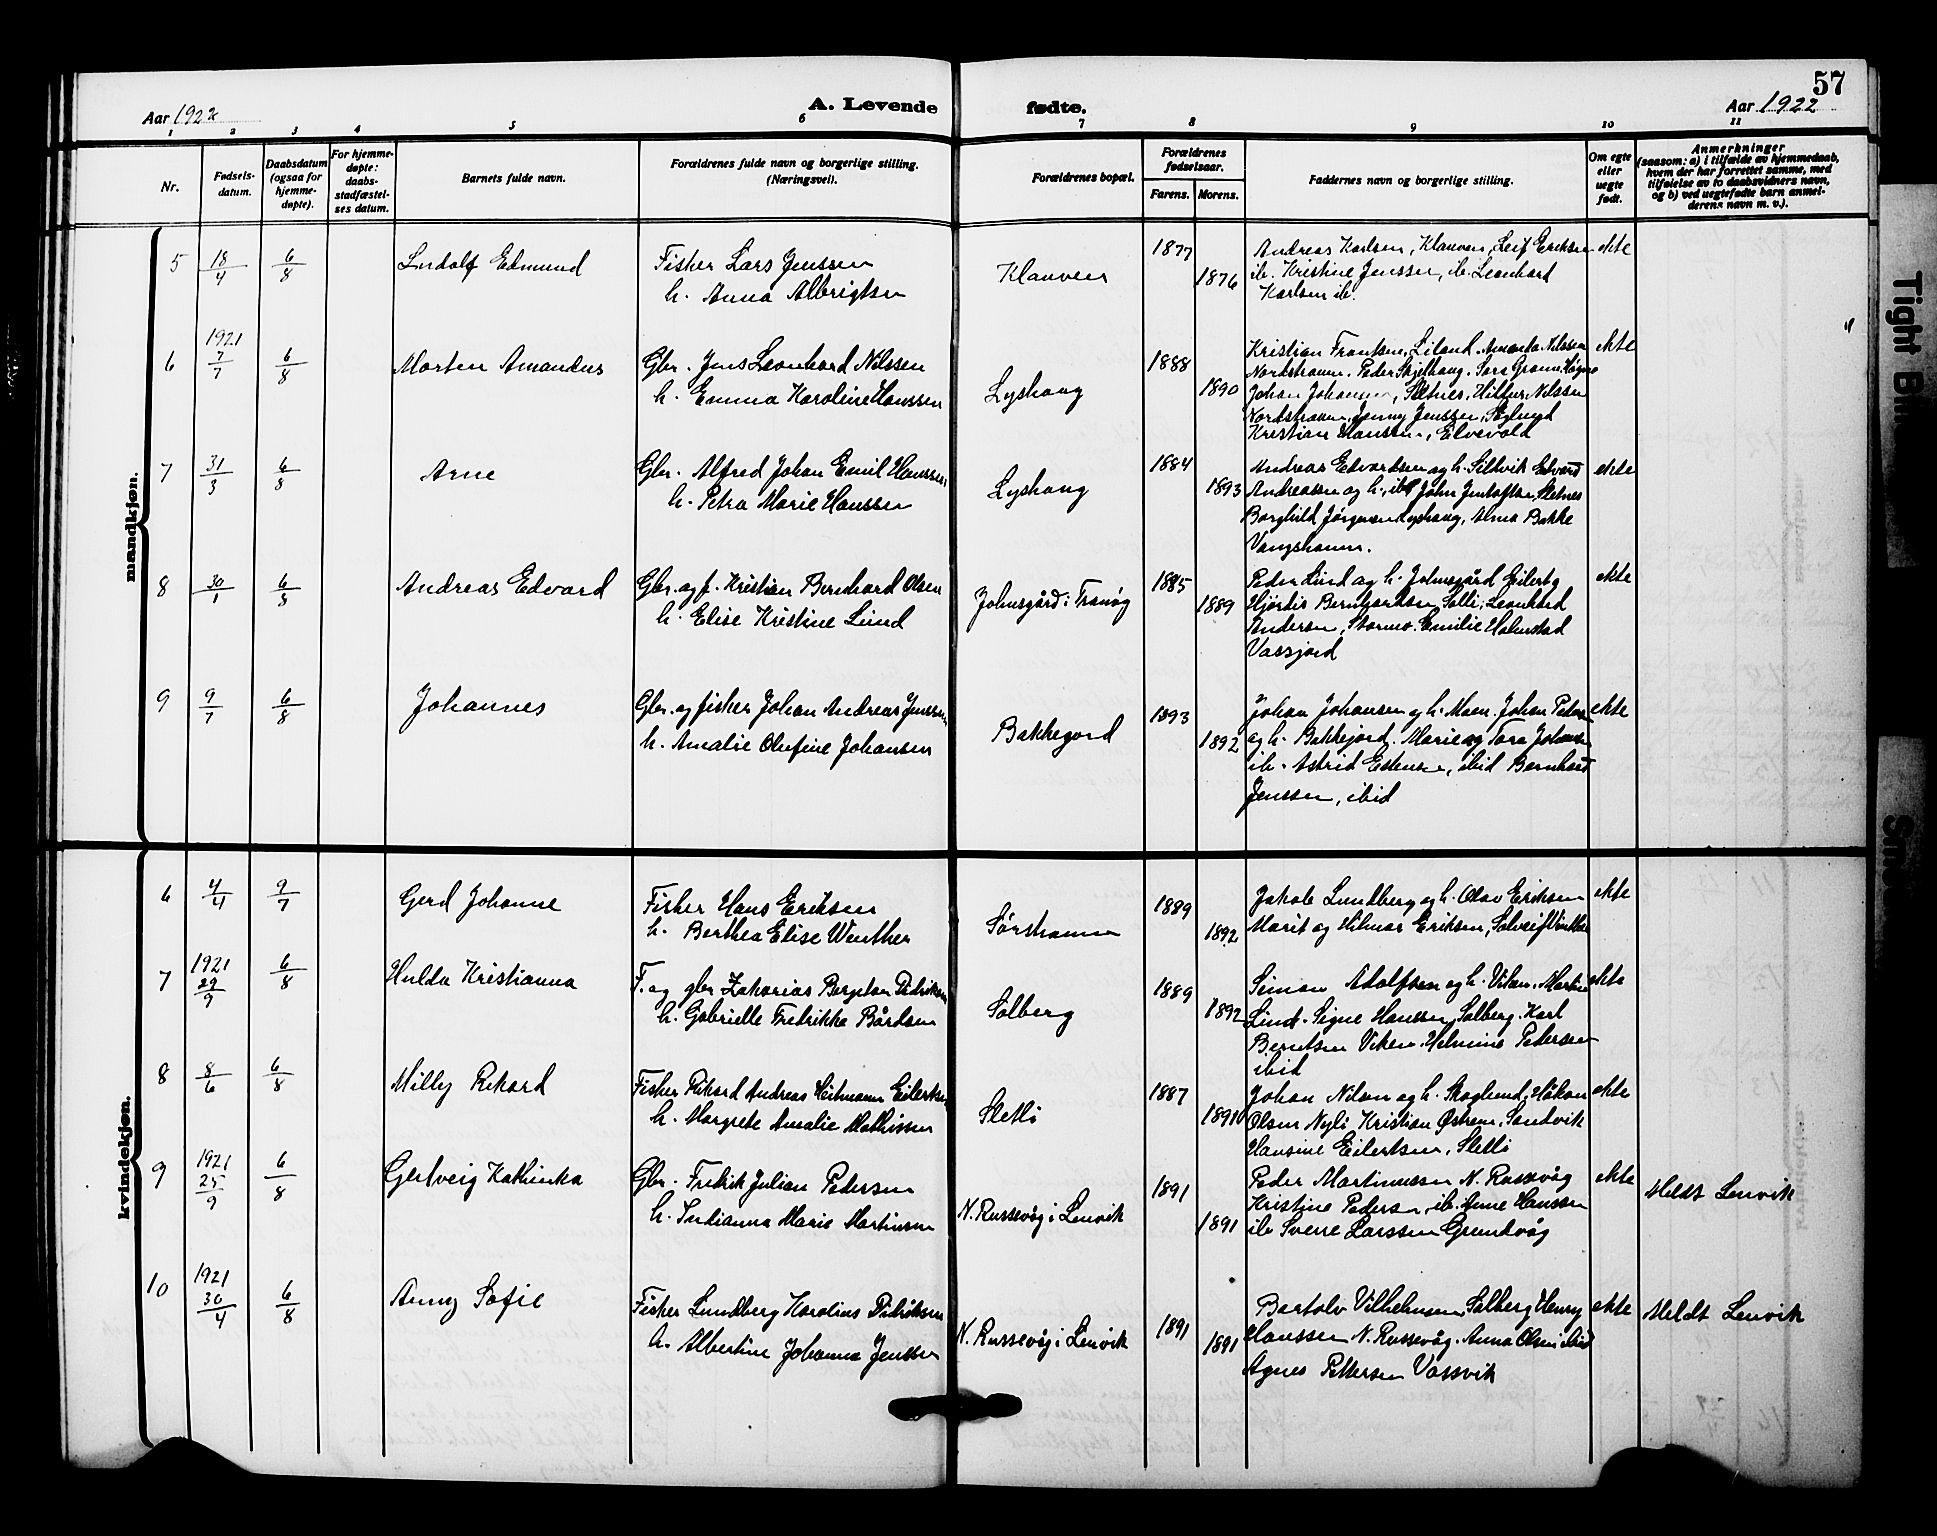 57
Aar 1922
A. Levende fødte.
Aar 1922
1 2 3 4 5 6 7 8 9 10 11
Nr.
Fødsels-
datum.
Daabsdatum
(ogsaa for
hjemme-
døpte).
For hjemme-
døpte:
daabs-
stadfæstel-
ses datum.
Barnets fulde navn.
Forældrenes fulde navn og borgerlige stilling.
(Næringsvei).
Forældrenes bopæl.
Forældrenes
fødselsaar.
Farens. Morens.
Faddernes navn og borgerlige stilling.
Om egte
eller
uegte
født.
Anmerkninger
(saasom: a) i tilfælde av hjemmedaab,
hvem der har forrettet samme, med
tilføielse av to daabsvidners navn,
og b) ved uegtefødte barn anmel-
derens navn m. v.).
mandkjøn.
5 18/4 6/8 Ludolf Edmund
Fisker Lars Jenssen
h. Anna Albrigtsen
Klauven
1877
1876
Andreas Karlsen, Klauven, Leif Eriksen
ib. Kristine Jenssen, ib. Leonhard
Karlsen ib.
ekte
6 1921 7/7 6/8 Morten Amandus
Gbr. Jens Leonhard Nilssen
h. Emma Karoline Hanssen
Lyshaug
1888
1890
Kristian Frantsen, Liland. Amanda Nilssen
Nordstraum. Peder Skjelhaug. Sara
Johan Johansen, Sletnes, Nilssen
Nordstraum, Jenny Jenssen,
Kristian Hansen, Elvevold
ekte
7 31/3 6/8 Arne
Gbr. Alfred Johan Emil Hanssen
h. Petra Marie Hanssen
Lyshaug
1884
1893
Andreas Edvardsen og h. Edvard
Andreassen og h., ib. John Sletnes
Borghild Jørgensen Lyshaug, Alma Bakke
Vangshamn.
ekte
8 30/1 6/8 Andreas Edvard
Gbr. og f. Kristian Bernhard Olsen
h. Elise Kristine Lund
Johnsgård i Tranøy
1885
1889
Peder Lund og h. Johnsgård Eilert og
Hjørdis Bernhardsen Solli; Leonhard
Andersen, Stormo. Emilie Holmstad
Vassjord
ekte
9 9/7 6/8 Johannes
Gbr. og fisker Johan Andreas Jenssen
h. Amalie Olufine Johansen
Bakkejord
1893
1892
Johan Johansen og h. Moen. Johan Peders
og h. Bakkejord. Marie og Tora Johansen
ib. Astrid Estensen, ibid Bernhard
Jenssen, ibid
ekte
kvindekjøn.
6 4/4 9/7 Gerd Johanne
Fisker Hans Eriksen
h. Berthea Elise Winther
Sørshamn
1889
1892
Jakob Lundberg og h. Olav Eriksen
Marit og Hilmar Eriksen, Solveig Winther
ekte
7 1921 29/9 6/8 Hulda Kristianna
F. og gbr Zakarias Bergeton Didriksen
h. Gabrielle Fredrikke Bårdsen
Solberg
1889
1892
Simon Adolfsen og h. Viken. Martin
Lind. Signe Hanssen, Solberg. Karl
Berntsen Viken. Helmine Pedersen
ibid
ekte
8 8/6 6/8 Milly Rikard
Fisker Rikard Andreas Heitmann Eilertsen
h. Margrete Amalie Mathissen
Sletli
1887
1890
Johan Nilsen og h. Skoglund, Håkon
Olsen Nyli Kristian Østrem, Sandvik
Hansine Eilertsen, Sletli
ekte
9 1921 25/9 6/8 Gudveig Kathinka
Gbr. Fredrik Julian Pedersen
h. Indianna Marie Martinsen
N. Russevåg i Lenvik
1891
1891
Peder Martinussen N. Russevåg
Kristine Pedersen, ib. Anne Hanssen
ib Sverre Larssen Grundvåg
ekte
Meldt Lenvik
10 1921 30/4 6/8 Anny Sofie
Fisker Lundberg Karolius Didriksen
h. Albertine Johanna Jenssen
N. Russevåg i Lenvik
1891
1891
Bartolv Vilhelmsen Solberg Henry
Hanssen N. Russevåg. Anna Olsen ibid
Agnes Pettersen Vassvik
ekte
Meldt Lenvik
Tight Bin